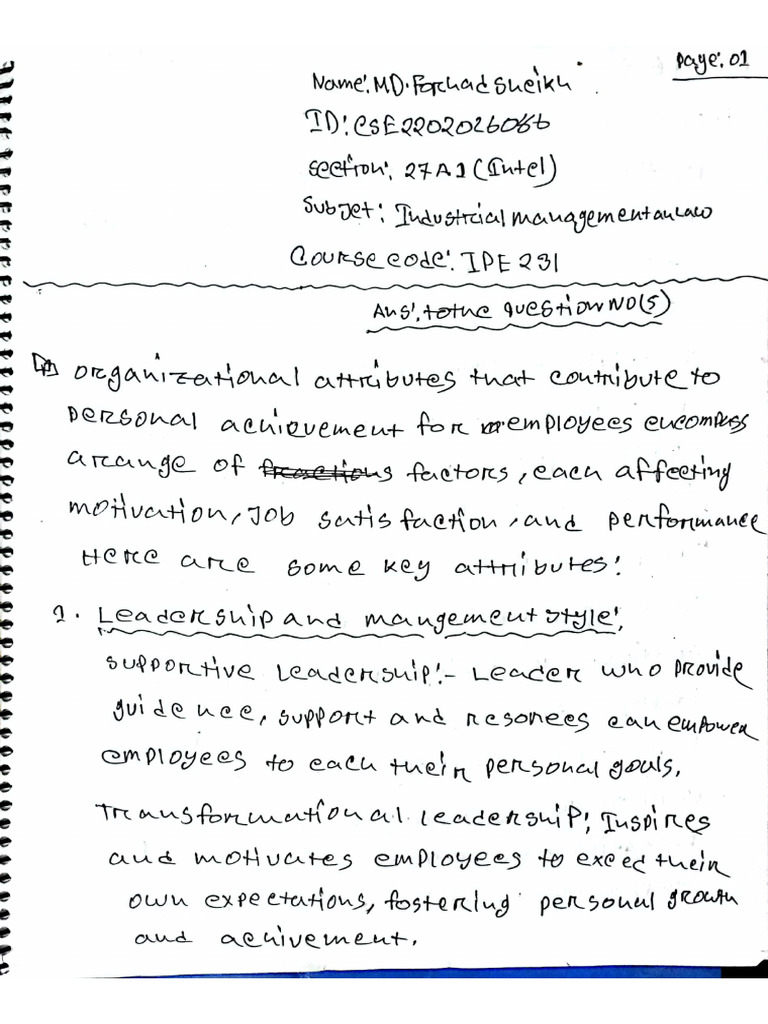 Page: 01
Name: MD. Forhad Sheikh
ID: CSE2202026066
Section: 27A1 (Intel)
Subjet: Industrial management an Law
Course code: IPE 231
Ans: to the question NO(5)
Organizational attributes that contribute to
personal achievement for employees encompass
a range of factors, each affecting
motivation, Job satisfaction, and performance
Here are some key attributes:
1. Leadership and mangement style:
Supportive Leadership:- Leader who provide
guidence, support and resorces can empower
employees to each their personal goals.
Transformational leadership: Inspires
and motivates employees to exceed their
own expectations, fostering personal growth
and achivement.